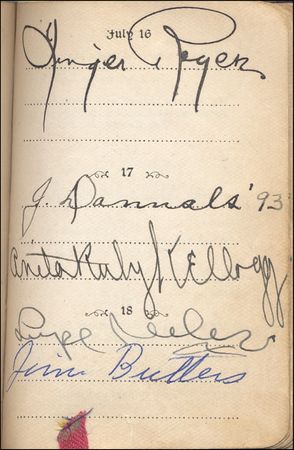 July 16
Ginger Rogers
17
J. Dannals '93
Anita Ruby Kellogg
18
Lupe Velez
Jim Butters